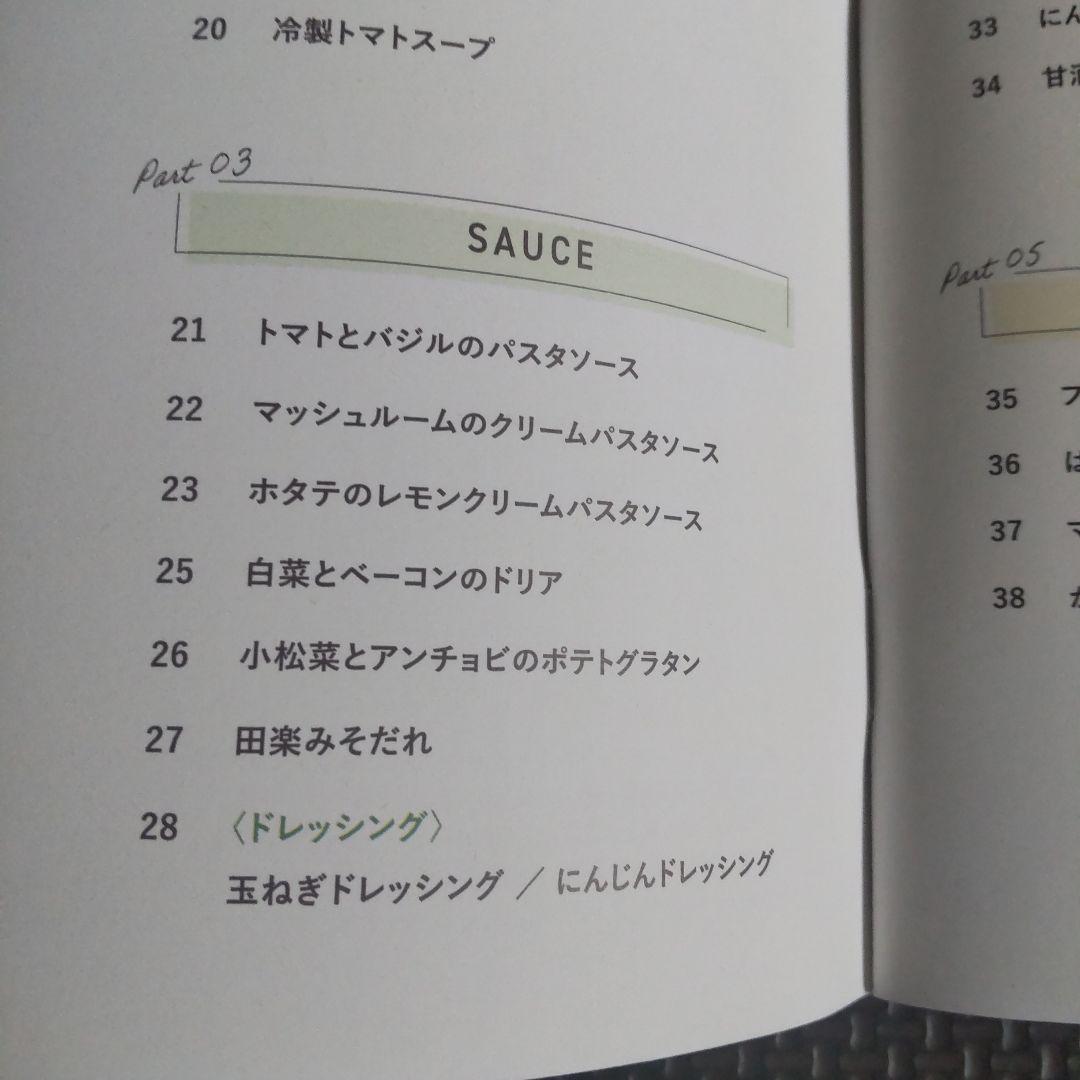 20 冷製トマトスープ
Part 03
SAUCE
21 トマトとバジルのパスタソース
22 マッシュルームのクリームパスタソース
23 ホタテのレモンクリームパスタソース
25 白菜とベーコンのドリア
26 小松菜とアンチョビのポテトグラタン
27 田楽みそだれ
28 〈ドレッシング〉
玉ねぎドレッシング / にんじんドレッシング
33 にん
34 甘酒
Part 05
35
36 は
37
38